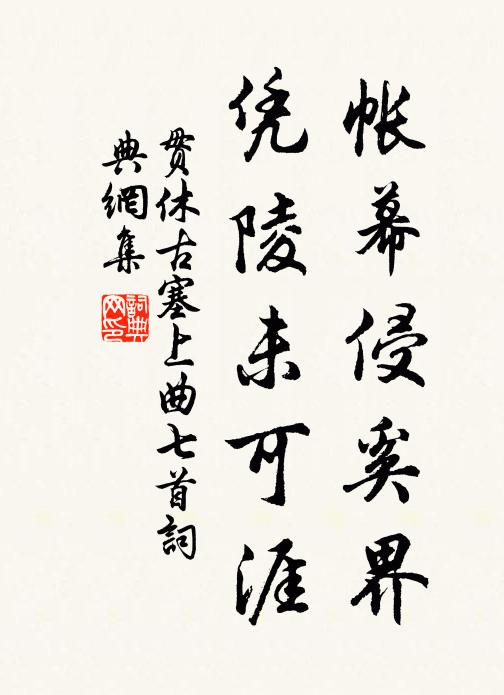 帐幕侵奚界
凭陵未可涯
贯休古塞上曲七首詞
典網集
詞典网印